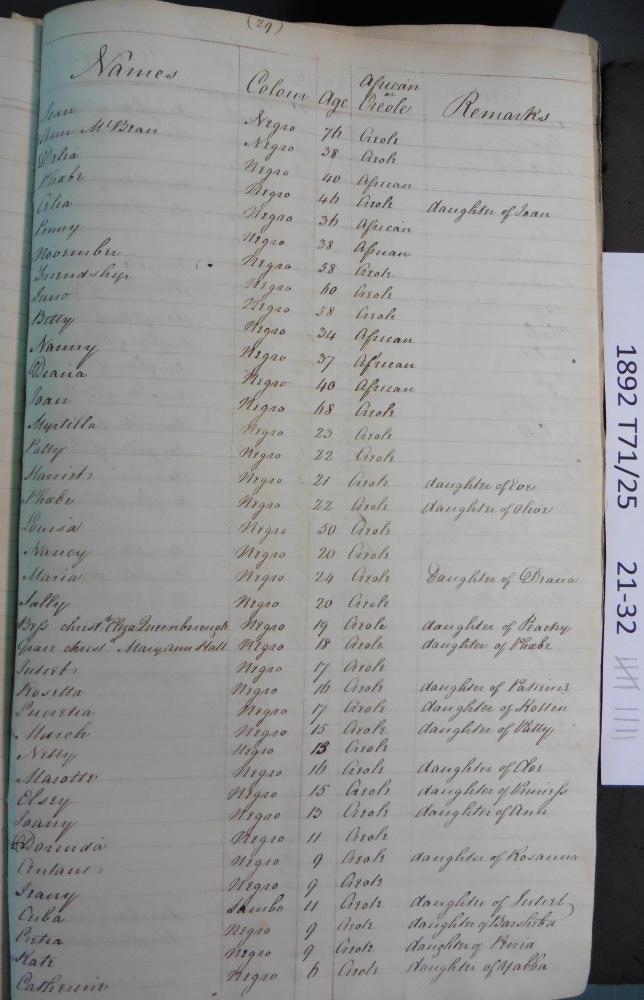 (29)
Names Colour Age African or Creole Remarks
Joan Negro 76 Creole
Ann McBean Negro 38 Creole
Delia Negro 40 African
Phœbe Negro 46 Creole daughter of Joan
Celia Negro 36 African
Penny Negro 38 African
November Negro 58 Creole
Friendship Negro 60 Creole
Juno Negro 58 Creole
Betty Negro 34 African
Nanny Negro 37 African
Diana Negro 40 African
Joan Negro 68 Creole
Myrtilla Negro 23 Creole
Patty Negro 22 Creole
Harriet Negro 21 Creole daughter of Eve
Phœbe Negro 22 Creole daughter of Olive
Louisa Negro 50 Creole
Nancy Negro 20 Creole
Maria Negro 24 Creole Daughter of Diana
Sally Negro 20 Creole
Bess christd Eliza Queenborough Negro 19 Creole daughter of Peachy
Grace christd Mary Ann Hall Negro 18 Creole daughter of Phœbe
Juliet Negro 17 Creole
Rosetta Negro 16 Creole daughter of Patience
Lucretia Negro 17 Creole daughter of
March Negro 15 Creole daughter of Patty
Netty Negro 13 Creole
Marotte Negro 16 Creole daughter of Cloe
Elsey Negro 15 Creole daughter of Princess
Joany Negro 13 Creole daughter of Ann
Dorinda Negro 11 Creole
Negro 9 Creole daughter of Rosanna
Negro 9 Creole
Cuba Sambo 11 Creole daughter of Juliet
Petra Negro 9 Creole daughter of Barsheba
Kate Negro 9 Creole daughter of
Catherine Negro 6 Creole daughter of Yabba
1892 T71/25 21-32